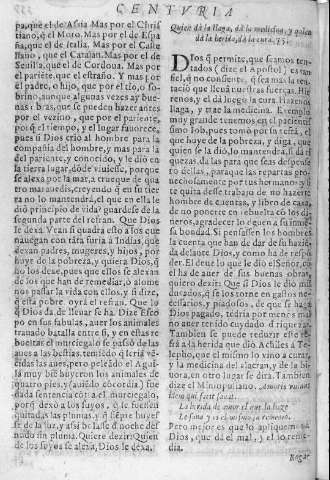 CENTVRIA
pa, que el de Asia Mas por el Chris
tiano, q̃ el Moro. Mas por el de Espa
ña, que el de Italia. Mas por el Caste
llano, que el Catalan. Mas por el de
Seuilla, que el de Cordoua. Mas por el
pariẽte, que el estraño. Y mas por
el padre, o hijo, que por el tio, o so-
brino, aunque algunas vezes ay bue
nas obras, que se pueden hazer antes
por el vezino, que por el pariente,
porq̃ el tiempo, y el lugar fauorece,
pues si Dios criò al hombre para la
compañia del hombre, y mas para la
del pariente, y conocido, y le diò en
la tierra lugar, dõde viuiesse, porque
se alexa por la mar, a trueque de qua
tro marauedis, creyendo q̃ en su tier
ra no los mantendrà, el que en ella le
diò principio de vida? guardese de la
segunda parte del refran. Que Dios
le dexa. Veran si quadra esto a los que
nauegan con tãta furia a Indias, que
dexan padres, mugeres, y hijos, por
huyr de la pobreza, y quiera Dios, q̃
no los dexe, pues que ellos se alexan
de los que han de remediar, o alome
nos passar la vida con ellos, y si dize,
q̃ esta pobre. oyrà el refran. Que lo
q̃ Dios da, de lleuar se ha. Dize Eso
po en sus fabulas, auer los animales
trauado batalla entre si, y en ellas re
boeltas el murcielago se passò de las
aues a las bestias, temiẽdo q̃ seriã vẽ
cidas las aues, pero peleãdo el Agui
la muy biẽ huyeron los animales de
quatro pies, y (auiẽdo cõcordia) fue
dada sentencia cõtra el murcielago,
porq̃ dexò a los suyos, q̃ le fuessen
quitadas las plumas, y q̃ siẽpre huyes
se de la luz, y assi buelasse de noche des
nudo sin pluma. Quiere dezir: Quien
de los suyos se alexa, Dios le dexa.
Quien dà la llaga, dà la medicina, y quien
dà la herida, dà la cura. 35.
DIos q̃ permite, que seamos ten-
tados (dize el Apostol) es tan
fiel, q̃ no consiente, q̃ sea mas la ten-
tacion que lleuã nuestras fuerças. Hie
renos, y el dà luego la cura. Hazenos
llaga, y trae la medicina. Exemplo
muy grande tenemos en el pacientis
simo Iob, pues tomò por señal, el
que huye de la pobreza, y diga, que
quien se la diò, lo mandarà, si dà ri
quezas, da las para que seas despense
ro dellas, paraque las repartas pro-
uechosamente por tus hermanos: y si
te quita desse trabajo de no hazerte
hombre de cuentas, y libro de caxa,
de no ponerte en rebuelta cõ los di-
neros, agradecerlo quen a su inmẽ-
sa bondad. Si pensassen los hombres
la cuenta que han de dar de su haziẽ
da delante Dios, y como ha de respõ
der. El deue lo que le diò el señor, co
el ha de auer de sus buenas obras,
quiero dezir: Que si Dios le diò mil
ducados, q̃ se los torne en gastos ne-
cessarios, y piadosos, de que se haga
Dios pagado, tedria por menos mal
no auer tenido cuydado de riquezas.
Tambien se puede reduzir este re-
frã a la herida que diò Achiles a Te-
lepho, que el mismo lo vino a curar,
y la medicina de alacran, y de la bi-
uora, en otro lugar se dirà. Tambien
dize el Mimo publiano. Amoris vulnus
idem qui facit sanat.
La herida de amor el que la haze
La sana, y es el mismo, la remedia.
Pero mejor es que lo apliquemos a
Dios, que dà el mal, y el lo reme-
dia.
Rogar